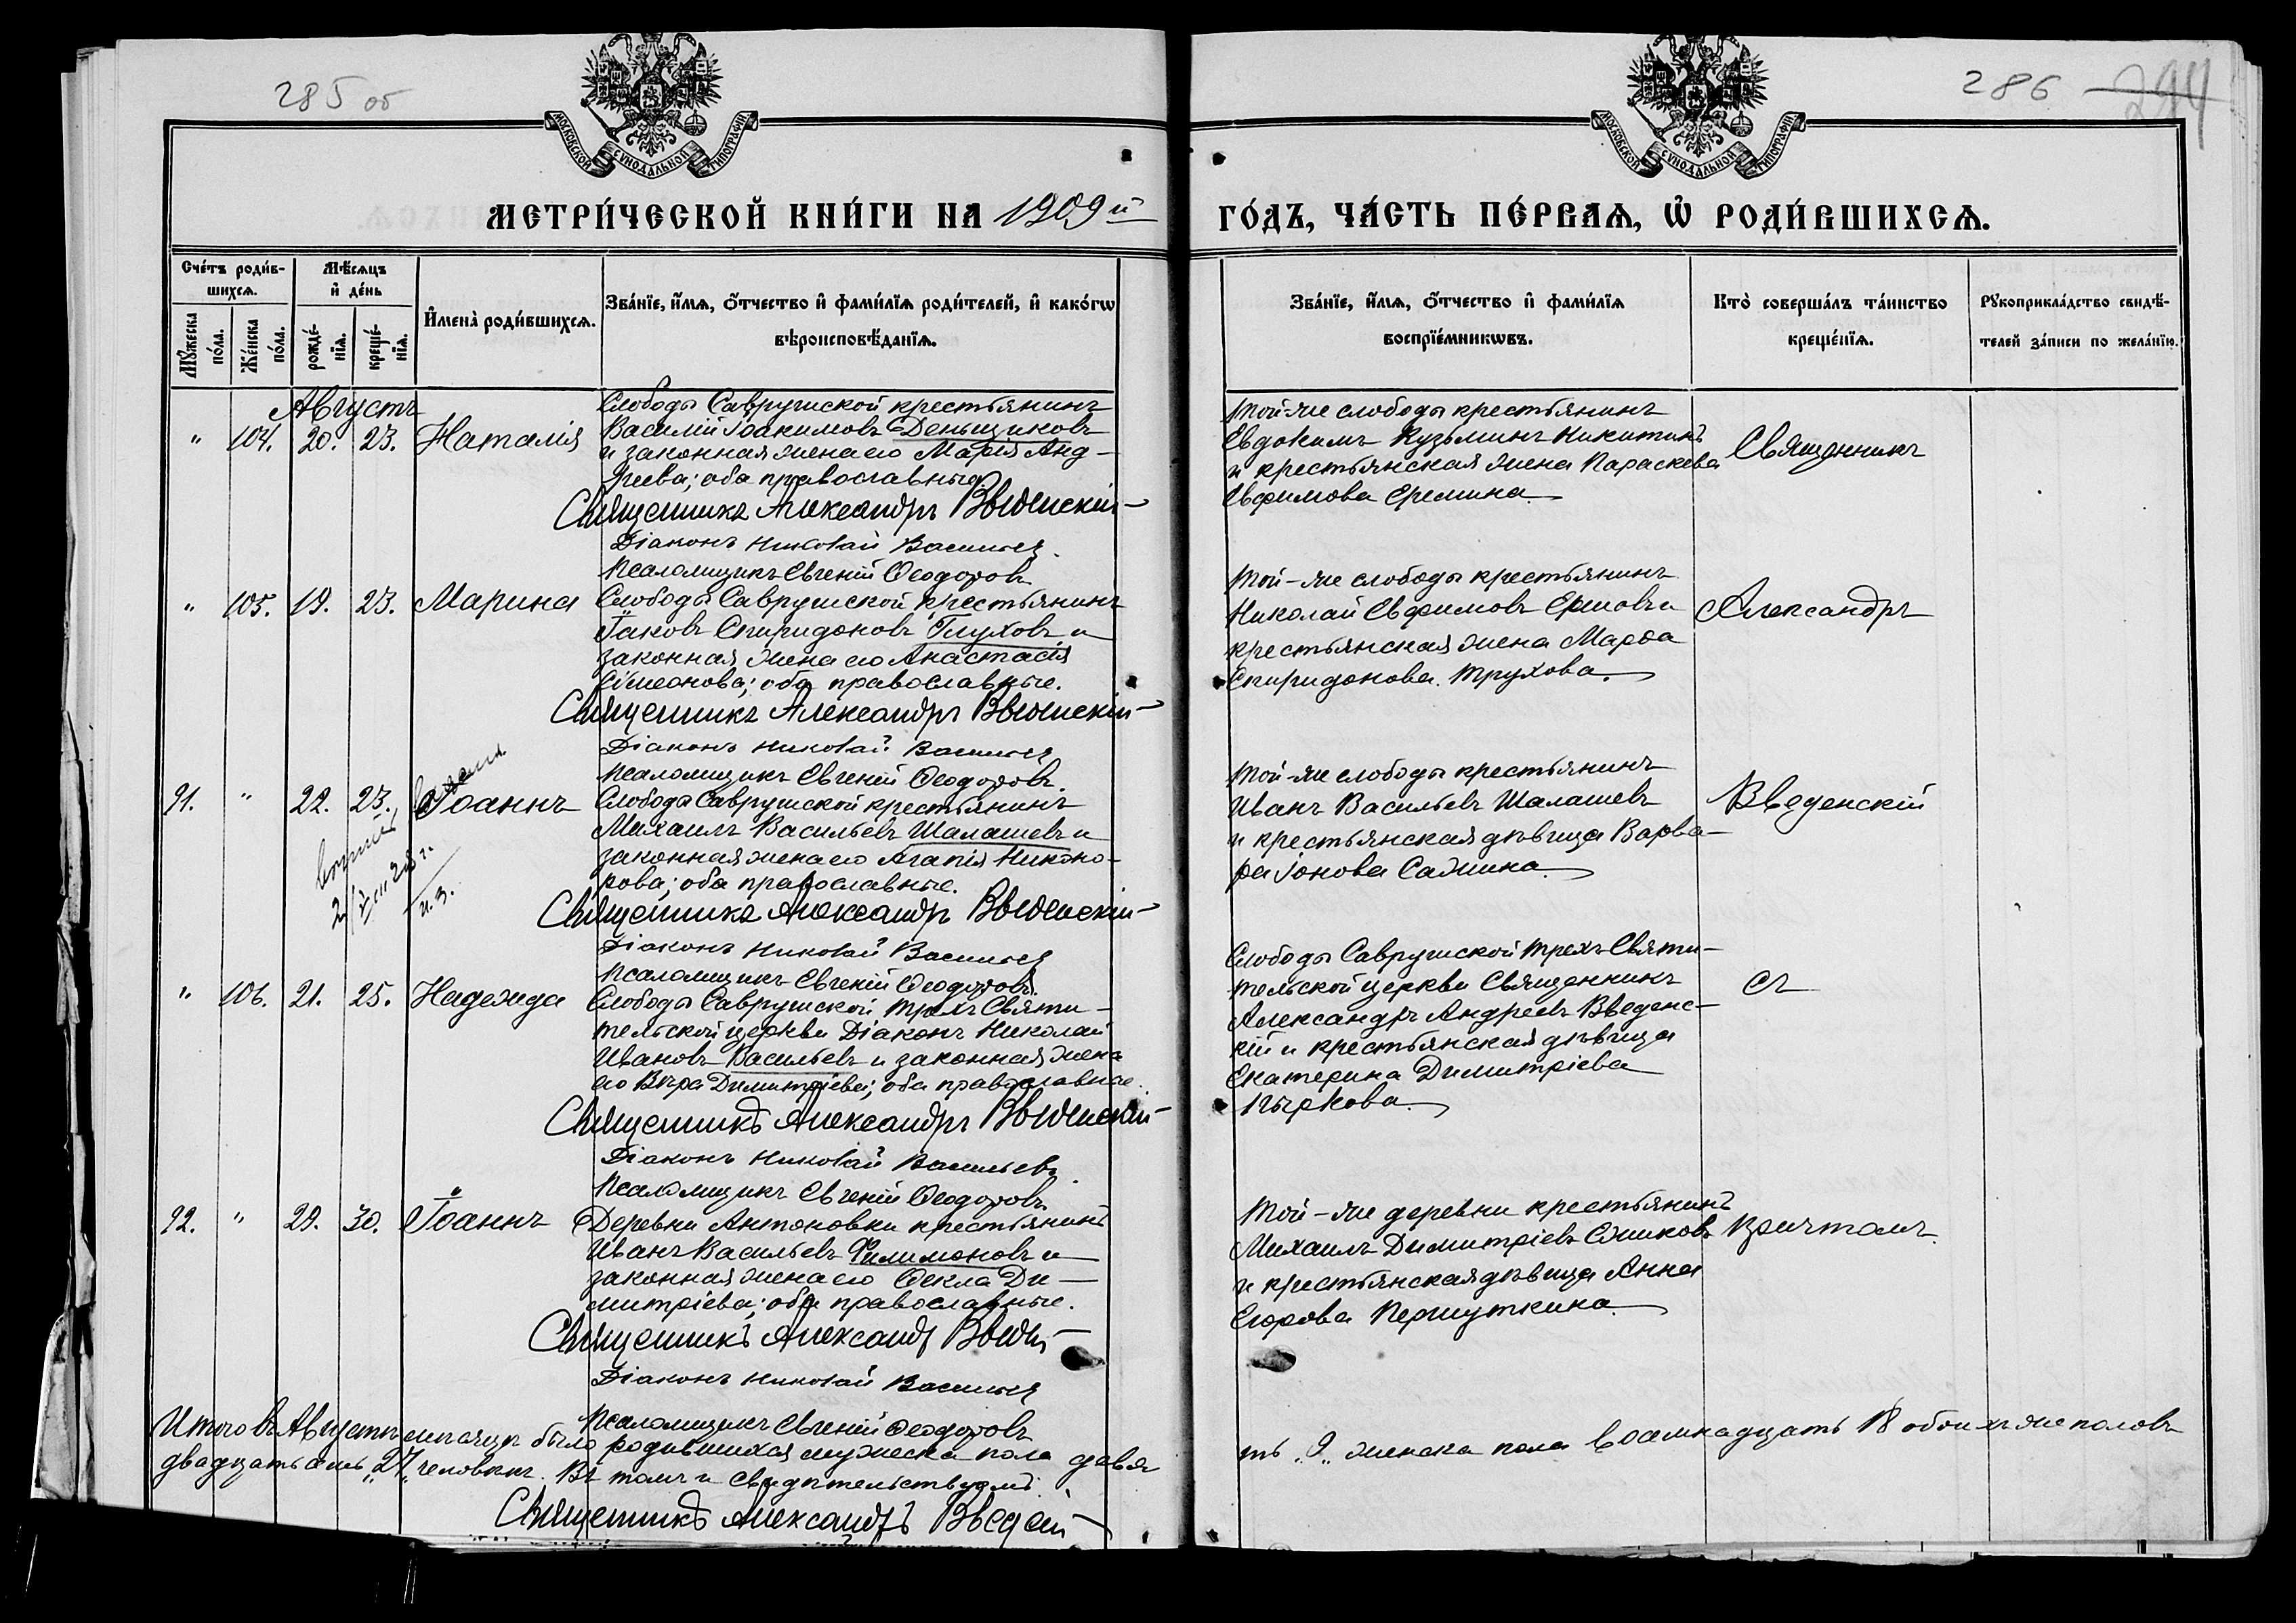 285 об
286 294
МОСКОВСКОЙ СѴНОДАЛЬНОЙ ТИПОГРАФІИ
МОСКОВСКОЙ СѴНОДАЛЬНОЙ ТИПОГРАФІИ
МЕТРИ́ЧЕСКОЙ КНИ́ГИ НА 1909й
ГО́ДЪ, ЧА́СТЬ ПЕ́РВАѦ, Ѡ҆ РОДИ́ВШИХСѦ.
Сче́тъ роди́в-
шихсѧ.
Мꙋ́жеска по́ла.
Же́нска по́ла.
Мѣ́сѧцъ
и҆ де́нь
рожде́-
нїѧ.
креще́-
нїѧ.
И҆мена̀ роди́вшихсѧ.
Зва́нїе, и҆́мѧ, ѻ҆́тчество и҆ фами́лїѧ роди́телей, и҆ како́гѡ
вѣроисповѣ́данїѧ.
Зва́нїе, и҆́мѧ, ѻ҆́тчество и҆ фами́лїѧ
воспрїе́мникѡвъ.
Кто̀ соверша́лъ та́инство
креще́нїѧ.
Рꙋкоприкла́дство свидѣ́-
телей за́писи по жела́нїю.
Августъ
" 104. 20. 23. Наталія
Слободы Саврушской крестьянинъ
Василій Іоакимовъ Деньщиковъ
и законная жена его Марія Анд-
реева; оба православные.
Священникъ Александръ Введенскій
Діаконъ Николай Васильев
Псаломщикъ Евгеній Ѳеодоровъ
Той-же слободы крестьянинъ
Евдокимъ Кузьминъ Никитинъ
и крестьянская жена Параскева
Евфимова Еремина.
Священникъ
" 105. 19. 23. Марина
Слободы Саврушской крестьянинъ
Іаковъ Спиридоновъ Глуховъ и
законная жена его Анастасія
Сѵмеонова; оба православные.
Священникъ Александръ Введенскій
Діаконъ Николай Васильев
Псаломщикъ Евгеній Ѳеодоровъ.
Той-же слободы крестьянинъ
Николай Евфимовъ Ершовъ и
крестьянская жена Марѳа
Спиридонова Трухова.
Александръ
91. " 22. 23. Іоаннъ
Слободы Саврушской крестьянинъ
Михаилъ Васильевъ Шалашевъ и
законная жена его Агапія Никоно-
рова; оба православные.
Священникъ Александръ Введенскій
Діаконъ Николай Васильев
Псаломщикъ Евгеній Ѳеодоровъ.
Той-же слободы крестьянинъ
Иванъ Васильевъ Шалашевъ
и крестьянская дѣвица Варва-
ра Іонова Сажина.
Введенскій
" 106. 21. 25. Надежда
Слободы Саврушской Трехъ-Святи-
тельской церкви Діаконъ Николай
Ивановъ Васильевъ и законная жена
его Вѣра Димитріева; оба православные.
Священникъ Александръ Введенскій
Діаконъ Николай Васильевъ
Псаломщикъ Евгеній Ѳеодоровъ
Слободы Саврушской Трехъ-Святи-
тельской церкви Священникъ
Александръ Андреевъ Введенс-
кій и крестьянская дѣвица
Екатерина Димитріева
Пыркова.
съ
92. " 29. 30. Іоаннъ
Деревни Антоновки крестьянинъ
Иванъ Васильевъ Филимоновъ и
законная жена его Ѳекла Ди-
митріева; оба православные.
Священникъ Александр Введен
Діаконъ Николай Васильев
Псаломщикъ Евгеній Ѳеодоровъ
Той-же деревни крестьянинъ
Михаилъ Димитріевъ
и крестьянская дѣвица Анна
Егорова Першуткина.
Причтомъ.
Итого въ Августѣ мѣсяцѣ было родившихся мужеска пола девя
ть „9" женска пола восемнадцать 18 обоихъ же половъ
двадцать семь „27" человѣкъ. Въ томъ и свидѣтельствуемъ:
Священникъ Александръ Введен